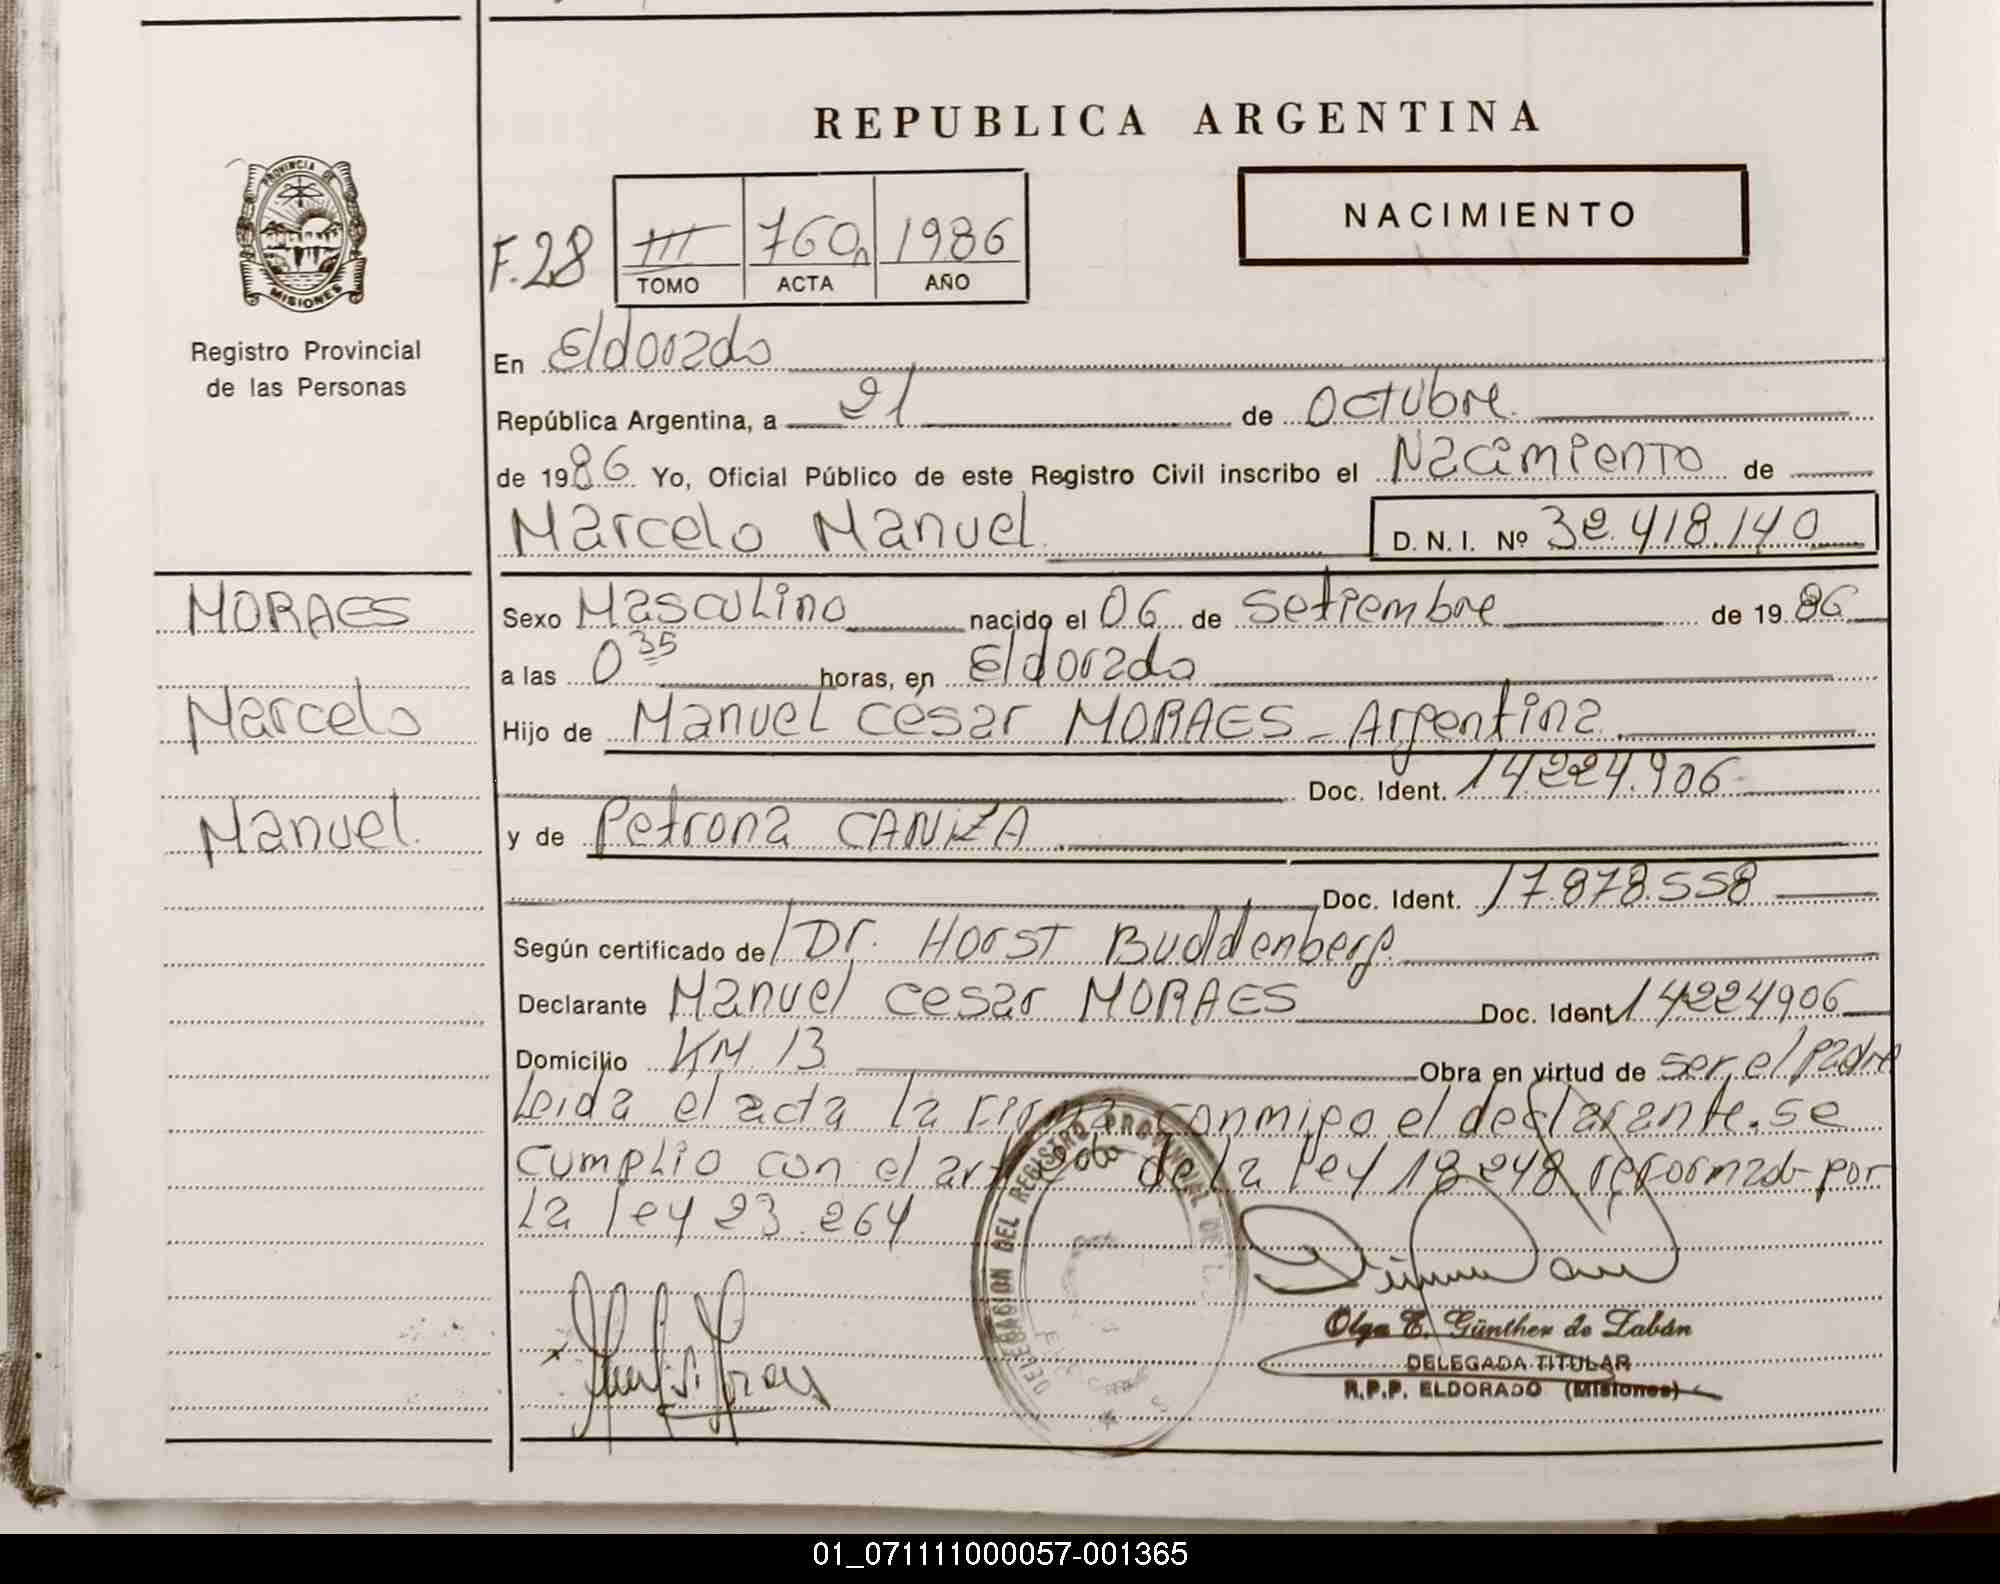 REPUBLICA ARGENTINA
PROVINCIA DE
MISIONES
Registro Provincial
de las Personas
NACIMIENTO
F.28
III 760 1986
TOMO ACTA AÑO
En Eldorado
República Argentina, a 21 de Octubre.
de 1986 Yo, Oficial Público de este Registro Civil inscribo el Nacimiento de
Marcelo Manuel D. N. I. Nº 32.418.140
MORAES
Marcelo
Manuel.
Sexo Masculino nacido el 06 de Setiembre de 1986
a las 0 35 horas, en Eldorado
Hijo de Manuel César MORAES - Argentina.
Doc. Ident. 14224.906
y de Petrona CANIZA.
Doc. Ident. 17.878.558
Según certificado de Dr. Horst Buddenberg.
Declarante Manuel Cesar MORAES Doc. Ident 14224906
Domicilio KM 13 Obra en virtud de ser el padre
Leida el acta la firma conmigo el declarante. se
cumplio con el art de la ley 18 248 reformado por
La ley 23.264
DELEGACION DEL REGISTRO PROVINCIAL DE
Olga E. Günther de Zabán
DELEGADA TITULAR
R.P.P. ELDORADO (Misiones)
01_071111000057-001365